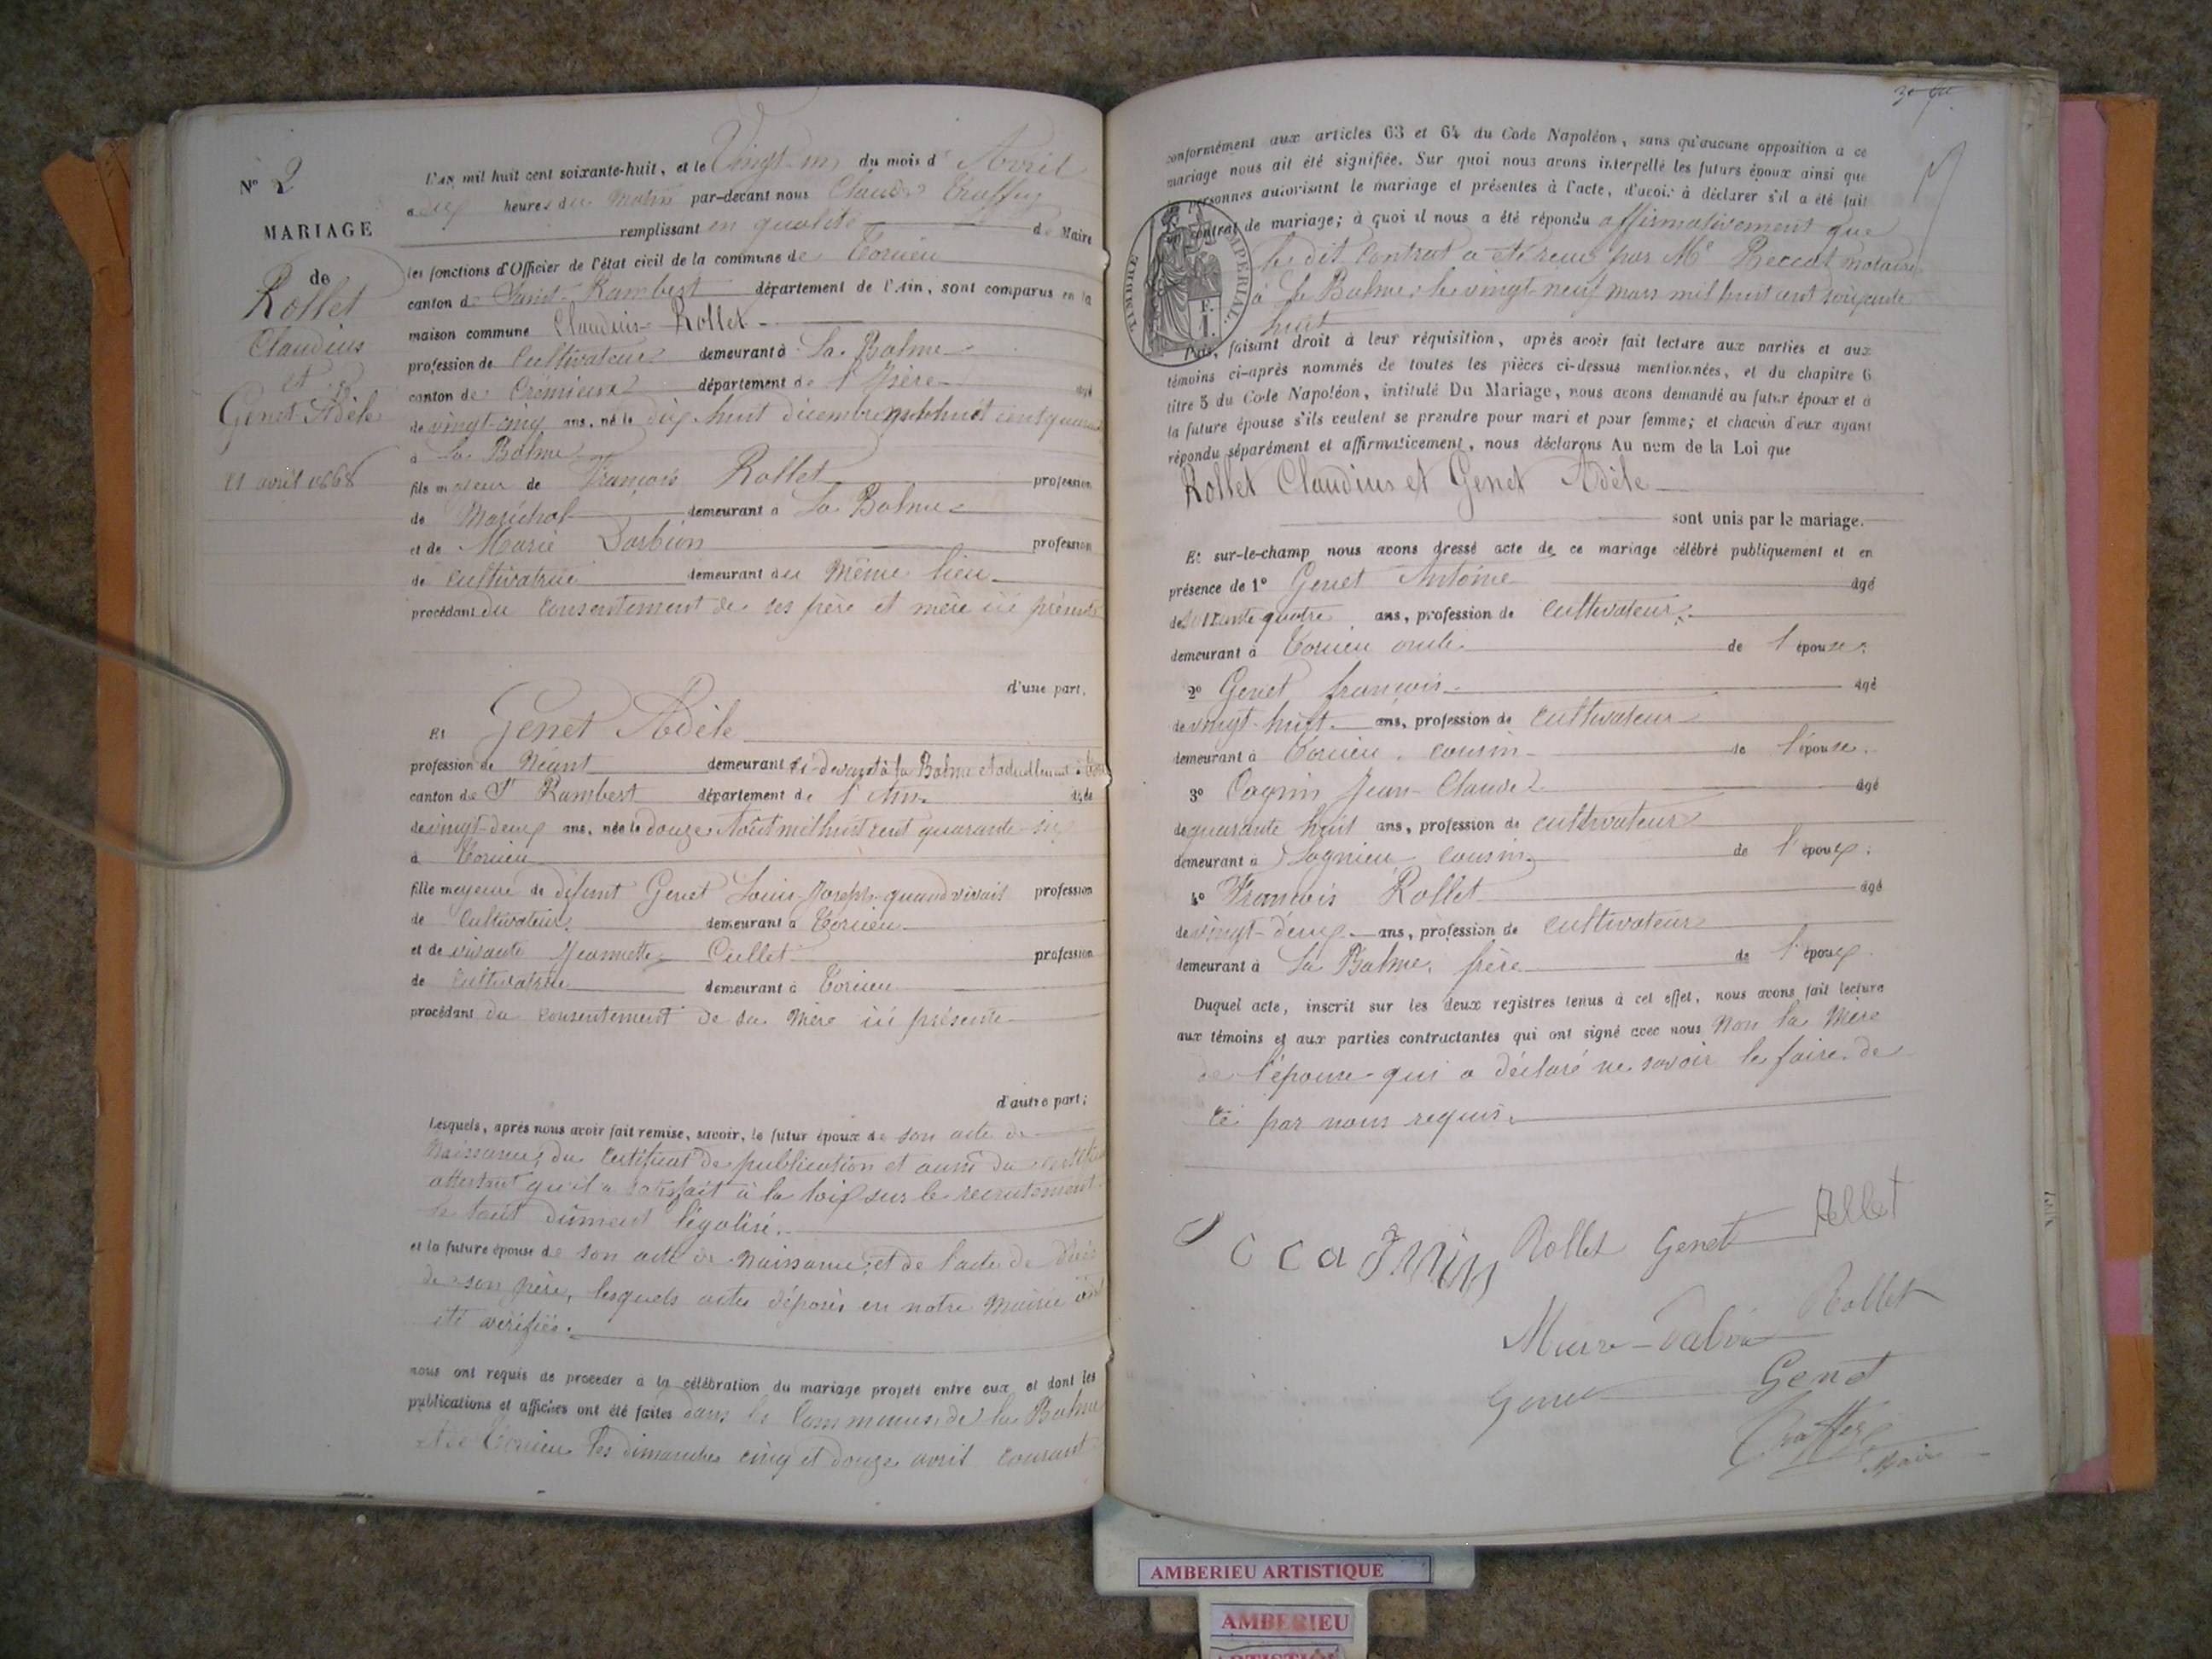 N° 2
MARIAGE
de
Rollet
Claudius
et
Genet Adèle
21 avril 1868
L'AN mil huit cent soixante-huit, et le Vingt-un du mois d'Avril
à dix heures du Matin par-devant nous Claude
remplissant en qualité de Maire
les fonctions d'Officier de l'état civil de la commune de Torcieu
canton de Saint-Rambert département de l'Ain, sont comparus en la
maison commune Claudius Rollet
profession de Cultivateur demeurant à La Balme
canton de Crémieux département de l'Isère âgé
de vingt-cinq ans, né le dix huit décembre mil huit cent quarante
à La Balme
fils majeur de François Rollet profession
de Maréchal demeurant à La Balme
et de Marie profession
de cultivatrice demeurant au Même lieu
procédant du consentement de ses père et mère ici présents
d'une part,
Et Genet Adèle
profession de Néant demeurant ci devant à la Balme et actuellement à
canton de St Rambert département de l'Ain âgée
de vingt-deux ans, née le douze Août mil huit cent quarante-six
à Torcieu
fille majeure de défunt Genet Louis-Joseph quand vivait profession
de Cultivateur demeurant à Torcieu
et de vivante Jeannette Cullet profession
de Cultivatrice demeurant à Torcieu
procédant du consentement de sa Mère ici présente
d'autre part;
Lesquels, après nous avoir fait remise, savoir, le futur époux de son acte de
Naissance, du Certificat de publication et aussi du certificat
attestant qu'il a satisfait à la loix sur le recrutement
le tout dûment légalisé.
et la future épouse de son acte de Naissance, et de l'acte de décès
de son père, lesquels actes déposés en notre Mairie ont
été vérifiés.
nous ont requis de procéder à la célébration du mariage projeté entre eux et dont les
publications et affiches ont été faites dans les Communes de la Balme
et de Torcieu les dimanches cinq et douze avril courant
conformément aux articles 63 et 64 du Code Napoléon, sans qu'aucune opposition à ce
mariage nous ait été signifiée. Sur quoi nous avons interpellé les futurs époux ainsi que
les personnes autorisant le mariage et présentes à l'acte, d'avoir à déclarer s'il a été fait
un contrat de mariage; à quoi il nous a été répondu affirmativement que
le dit Contrat a été reçu par Me notaire
à La Balme, le vingt-neuf mars mil huit cent soixante
huit
TIMBRE IMPERIAL
F.
1.
Nous, faisant droit à leur réquisition, après avoir fait lecture aux parties et aux
témoins ci-après nommés de toutes les pièces ci-dessus mentionnées, et du chapitre 6
titre 5 du Code Napoléon, intitulé Du Mariage, nous avons demandé au futur époux et à
la future épouse s'ils veulent se prendre pour mari et pour femme; et chacun d'eux ayant
répondu séparément et affirmativement, nous déclarons Au nom de la Loi que
Rollet Claudius et Genet Adèle
sont unis par le mariage.
Et sur-le-champ nous avons dressé acte de ce mariage célébré publiquement et en
présence de 1° Genet Antoine âgé
de soixante quatre ans, profession de cultivateur
demeurant à Torcieu oncle de l'épouse.
2° Genet françois âgé
de vingt-huit ans, profession de cultivateur
demeurant à Torcieu, cousin de l'épouse.
3° Cagnin Jean-Claude âgé
de quarante huit ans, profession de cultivateur
demeurant à Lagnieu cousin de l'époux.
4° François Rollet âgé
de vingt-deux ans, profession de cultivateur
demeurant à La Balme, frère de l'époux.
Duquel acte, inscrit sur les deux registres tenus à cet effet, nous avons fait lecture
aux témoins et aux parties contractantes qui ont signé avec nous Non la Mère
de l'épouse qui a déclaré ne savoir le faire de
ce par nous requis.
Rollet Genet Rollet
Rollet
Genet
Genet
Maire
AMBERIEU ARTISTIQUE
AMBERIEU
ARTISTIQUE